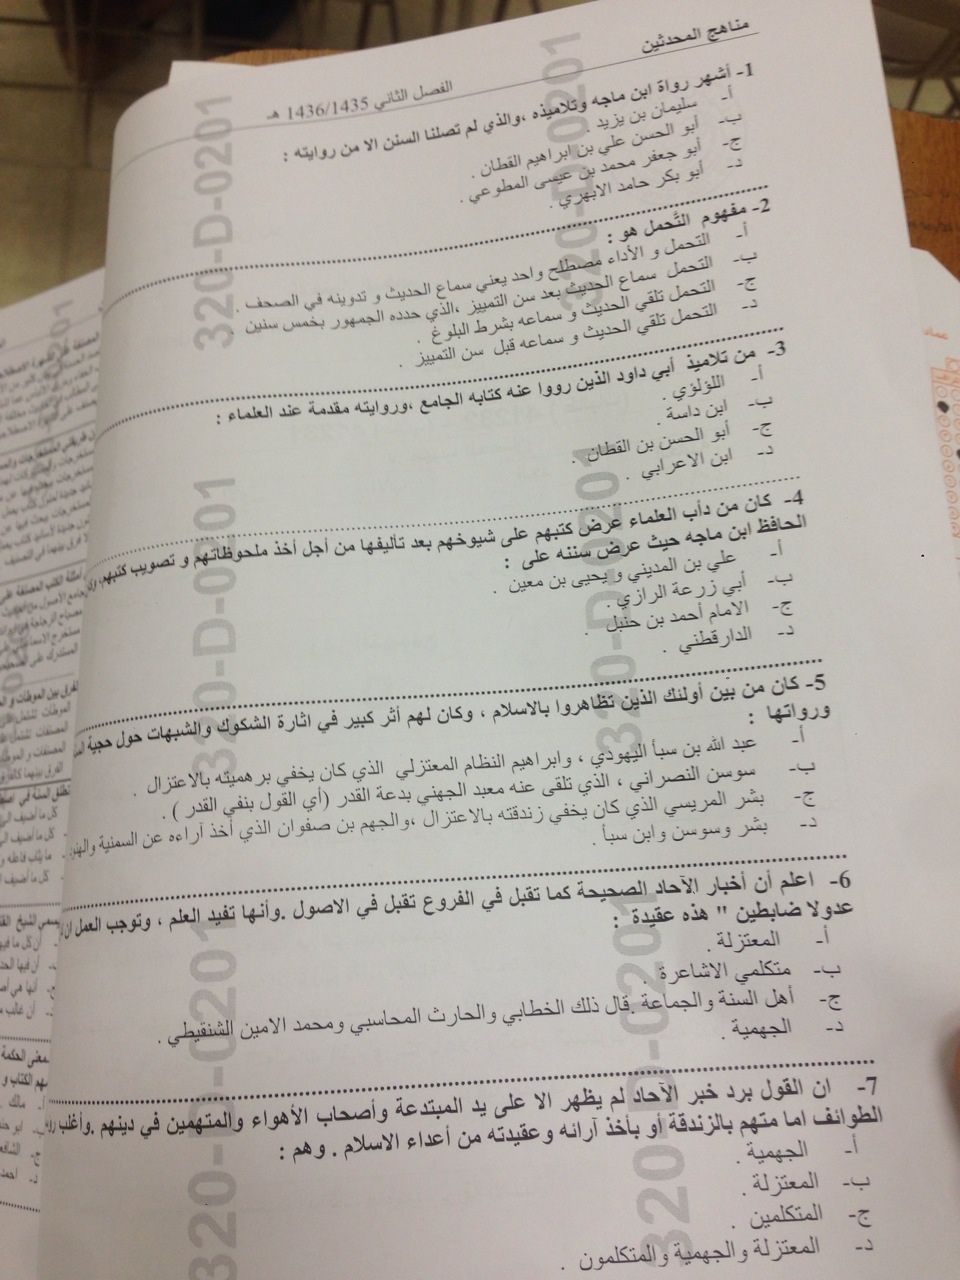 مناهج المحدثين
الفصل الثاني 1436/1435 هـ
1- أشهر رواة ابن ماجه وتلاميذه ،والذي لم تصلنا السنن الا من روايته :
أ- سليمان بن يزيد .
ب- أبو الحسن علي بن ابراهيم القطان .
ج- أبو جعفر محمد بن عيسى المطوعي .
د- أبو بكر حامد الابهري .
2- مفهوم التَّحمل هو :
أ- التحمل و الأداء مصطلح واحد يعني سماع الحديث و تدوينه في الصحف .
ب- التحمل سماع الحديث بعد سن التمييز ،الذي حدده الجمهور بخمس سنين .
ج- التحمل تلقي الحديث و سماعه بشرط البلوغ .
د- التحمل تلقي الحديث و سماعه قبل سن التمييز .
3- من تلاميذ أبي داود الذين رووا عنه كتابه الجامع ،وروايته مقدمة عند العلماء :
أ- اللؤلؤي .
ب- ابن داسة .
ج- أبو الحسن بن القطان .
د- ابن الاعرابي .
4- كان من دأب العلماء عرض كتبهم على شيوخهم بعد تأليفها من أجل أخذ ملحوظاتهم و تصويب كتبهم
الحافظ ابن ماجه حيث عرض سننه على :
أ- علي بن المديني و يحيى بن معين .
ب- أبي زرعة الرازي .
ج- الامام أحمد بن حنبل .
د- الدارقطني .
5- كان من بين أولئك الذين تظاهروا بالاسلام ، وكان لهم أثر كبير في اثارة الشكوك والشبهات حول حجية
ورواتها :
أ- عبد الله بن سبأ اليهودي ، وابراهيم النظام المعتزلي الذي كان يخفي برهميته بالاعتزال .
ب- سوسن النصراني ، الذي تلقى عنه معبد الجهني بدعة القدر (أي القول بنفي القدر ) .
ج- بشر المريسي الذي كان يخفي زندقته بالاعتزال ،والجهم بن صفوان الذي أخذ آراءه عن السمنية
د- بشر وسوسن وابن سبأ .
6- اعلم أن أخبار الآحاد الصحيحة كما تقبل في الفروع تقبل في الاصول .وأنها تفيد العلم ، وتوجب العمل
عدولا ضابطين " هذه عقيدة :
أ- المعتزلة .
ب- متكلمي الاشاعرة .
ج- أهل السنة والجماعة .قال ذلك الخطابي والحارث المحاسبي ومحمد الامين الشنقيطي .
د- الجهمية .
7- ان القول برد خبر الآحاد لم يظهر الا على يد المبتدعة وأصحاب الأهواء والمتهمين في دينهم .وأغلب
الطوائف اما متهم بالزندقة أو بأخذ آرائه وعقيدته من أعداء الاسلام . وهم :
أ- الجهمية .
ب- المعتزلة .
ج- المتكلمين .
د- المعتزلة والجهمية والمتكلمون .
320-D-0201
320-D-0201
320-D-0201
320-D-0201
320-D-0201
320-D-0201